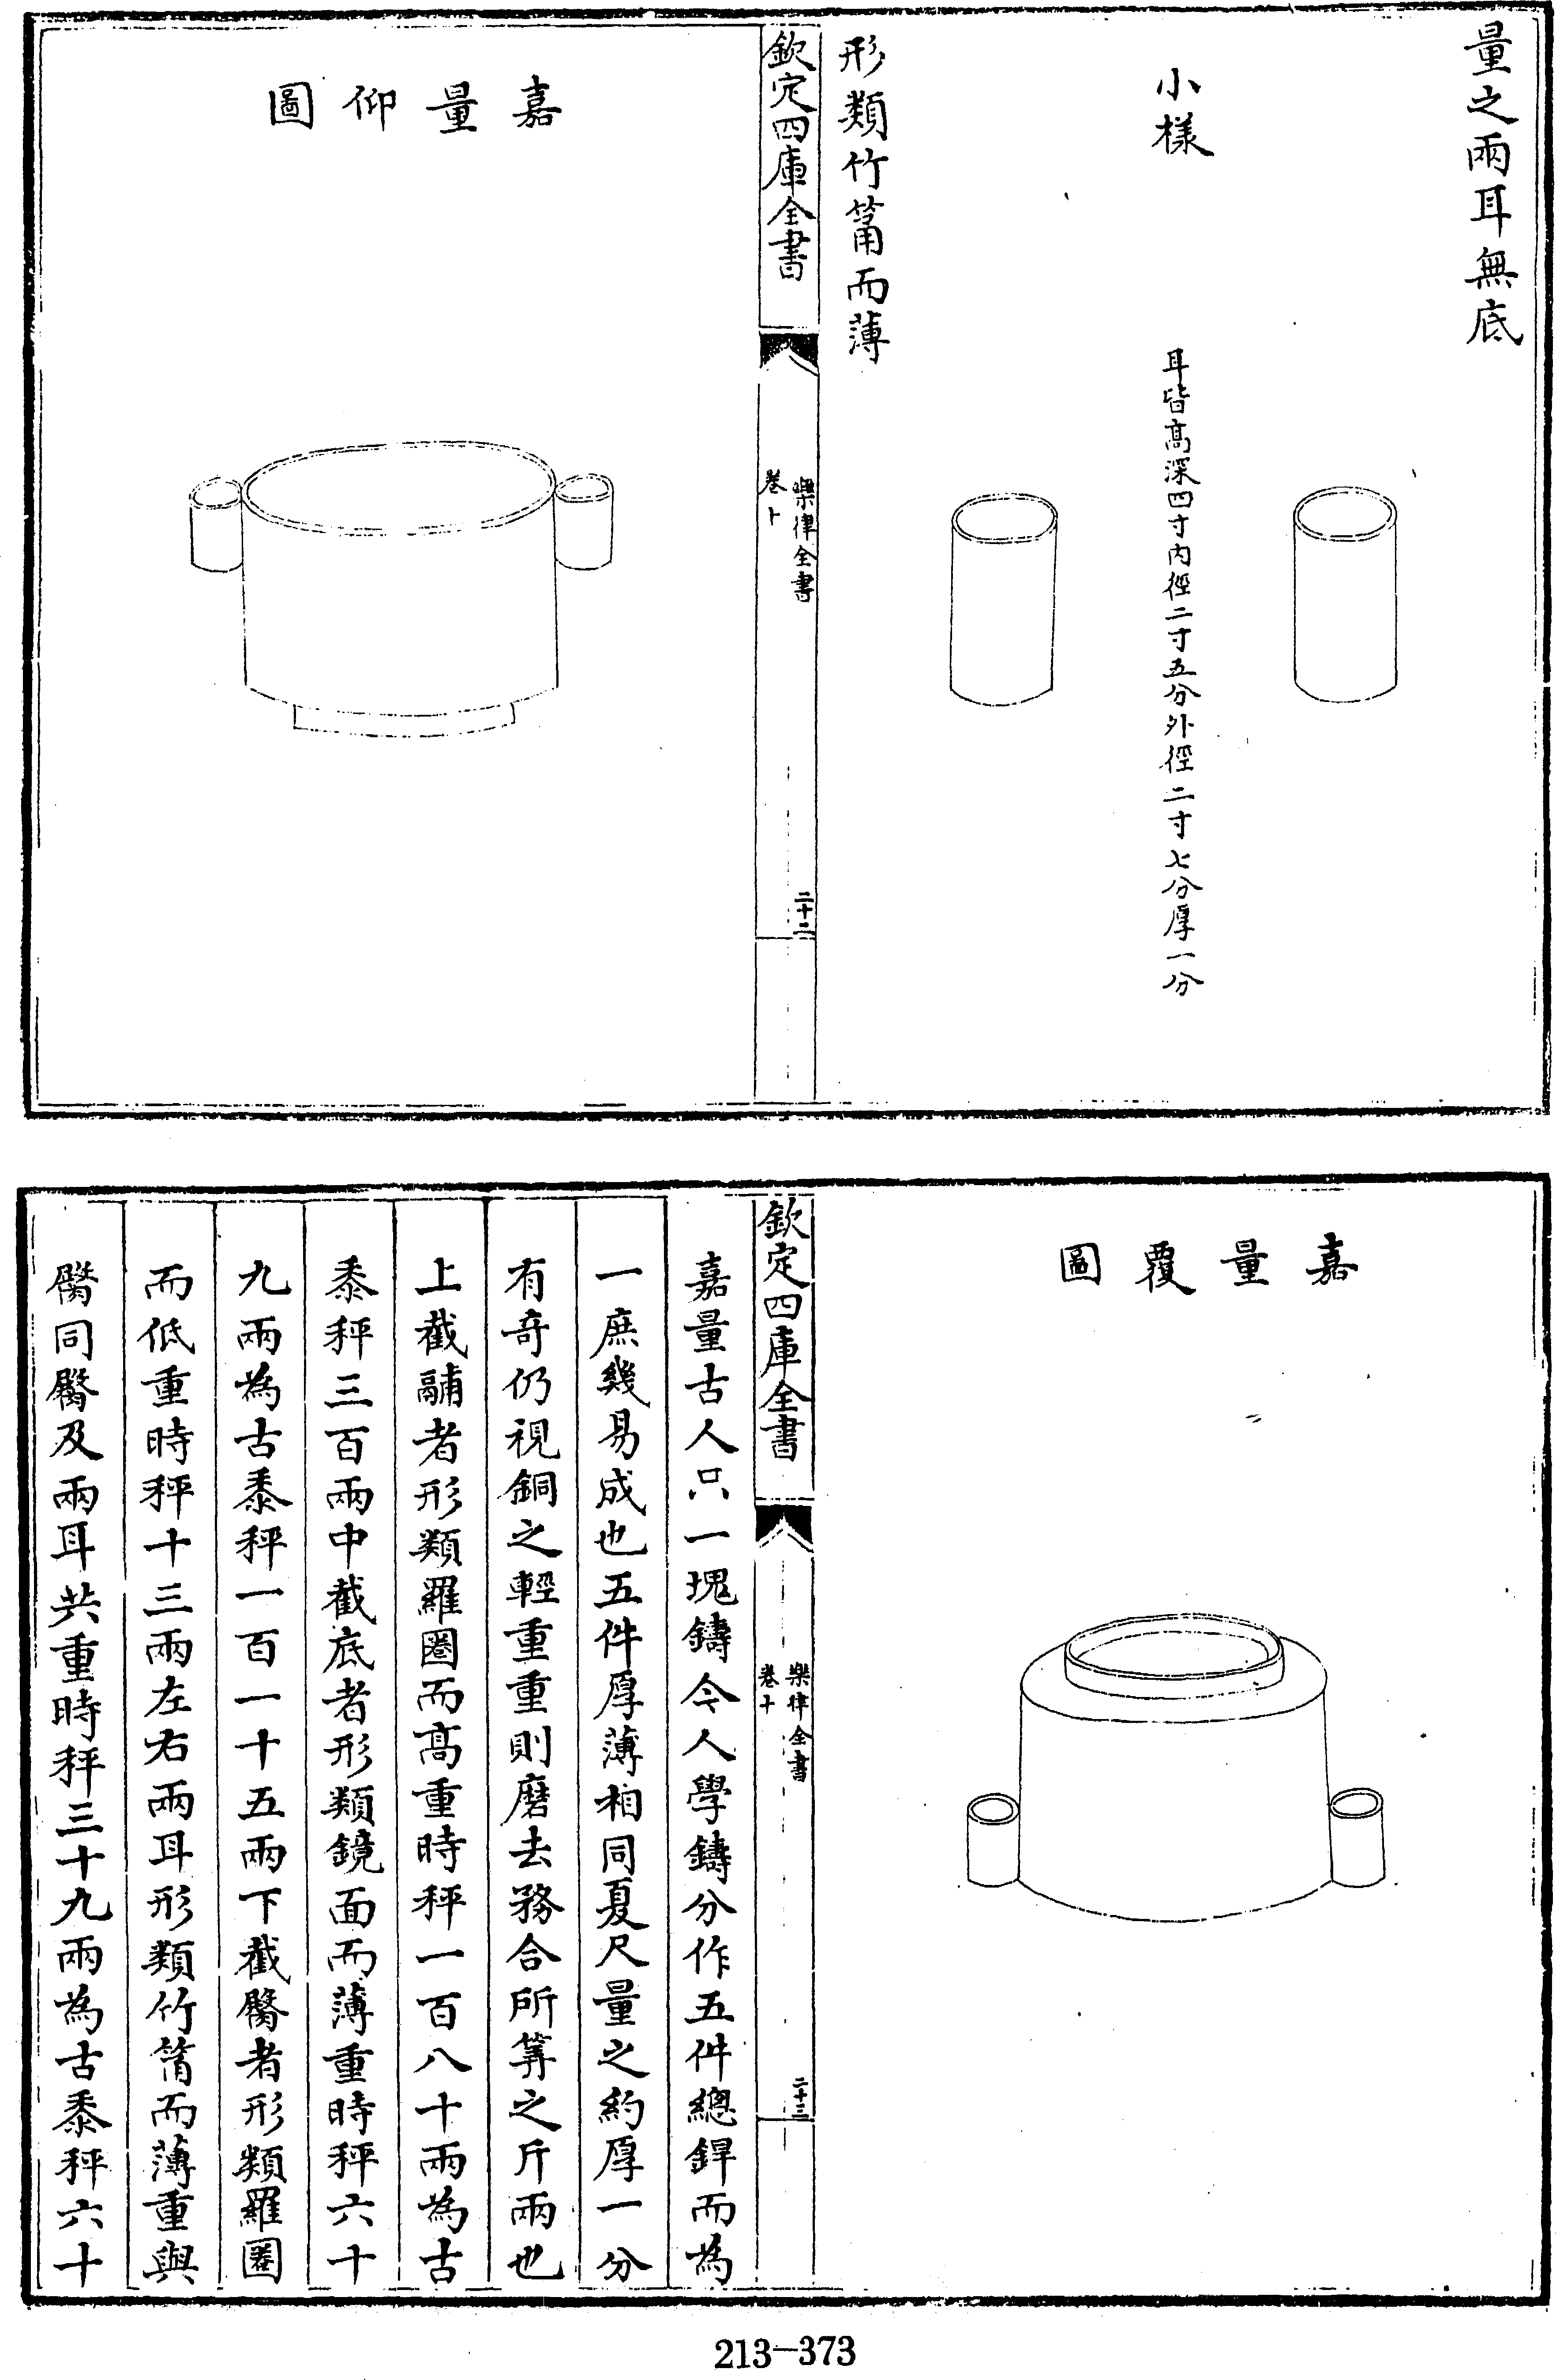 量之兩耳無底
小樣
耳皆高深四寸內徑二寸五分外徑二寸七分厚一分
形類竹筩而薄
欽定四庫全書
樂律全書
卷十
二十二
嘉量仰圖
嘉量覆圖
欽定四庫全書
樂律全書
卷十
二十三
嘉量古人只一塊鑄今人學鑄分作五件總銲而為
一庶幾易成也五件厚薄相同夏尺量之約厚一分
有奇仍視銅之輕重重則磨去務合所筭之斤兩也
上截鬴者形類羅圈而高重時秤一百八十兩為古
黍秤三百兩中截底者形類鏡面而薄重時秤六十
九兩為古黍秤一百一十五兩下截臋者形類羅圈
而低重時秤十三兩左右兩耳形類竹筩而薄重與
臋同臋及兩耳共重時秤三十九兩為古黍秤六十
213-373